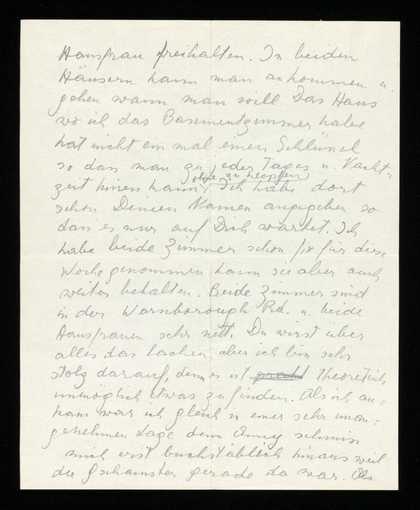 Hausfrau freihalten. In beiden
Häusern kann man ankommen u.
gehen wann man will Das Haus
wo ich das Basementzimmer habe
hat nicht ein mal einen Schlüssel
so dass man zu jeder Tages u. Nacht-
zeit hinein kann, ohne zu klopfen Ich habe dort
schon Deinen Namen angegeben so
dass es nur auf Dich wartet. Ich
habe beide Zimmer schon für diese
Woche genommen kann sie aber auch
weiter behalten. Beide Zimmer sind
in der Warnborough Rd. u. beide
Hausfrauen sehr nett. Du wirst über
alles das lachen, aber ich bin sehr
stolz darauf, denn es ist theoretisch
unmöglich etwas zu finden. Als ich an-
kam war ich gleich in einer sehr unan-
genehmen Lage denn schmiss
mich erst buchstäblich hinaus weil
die gerade da war. Als